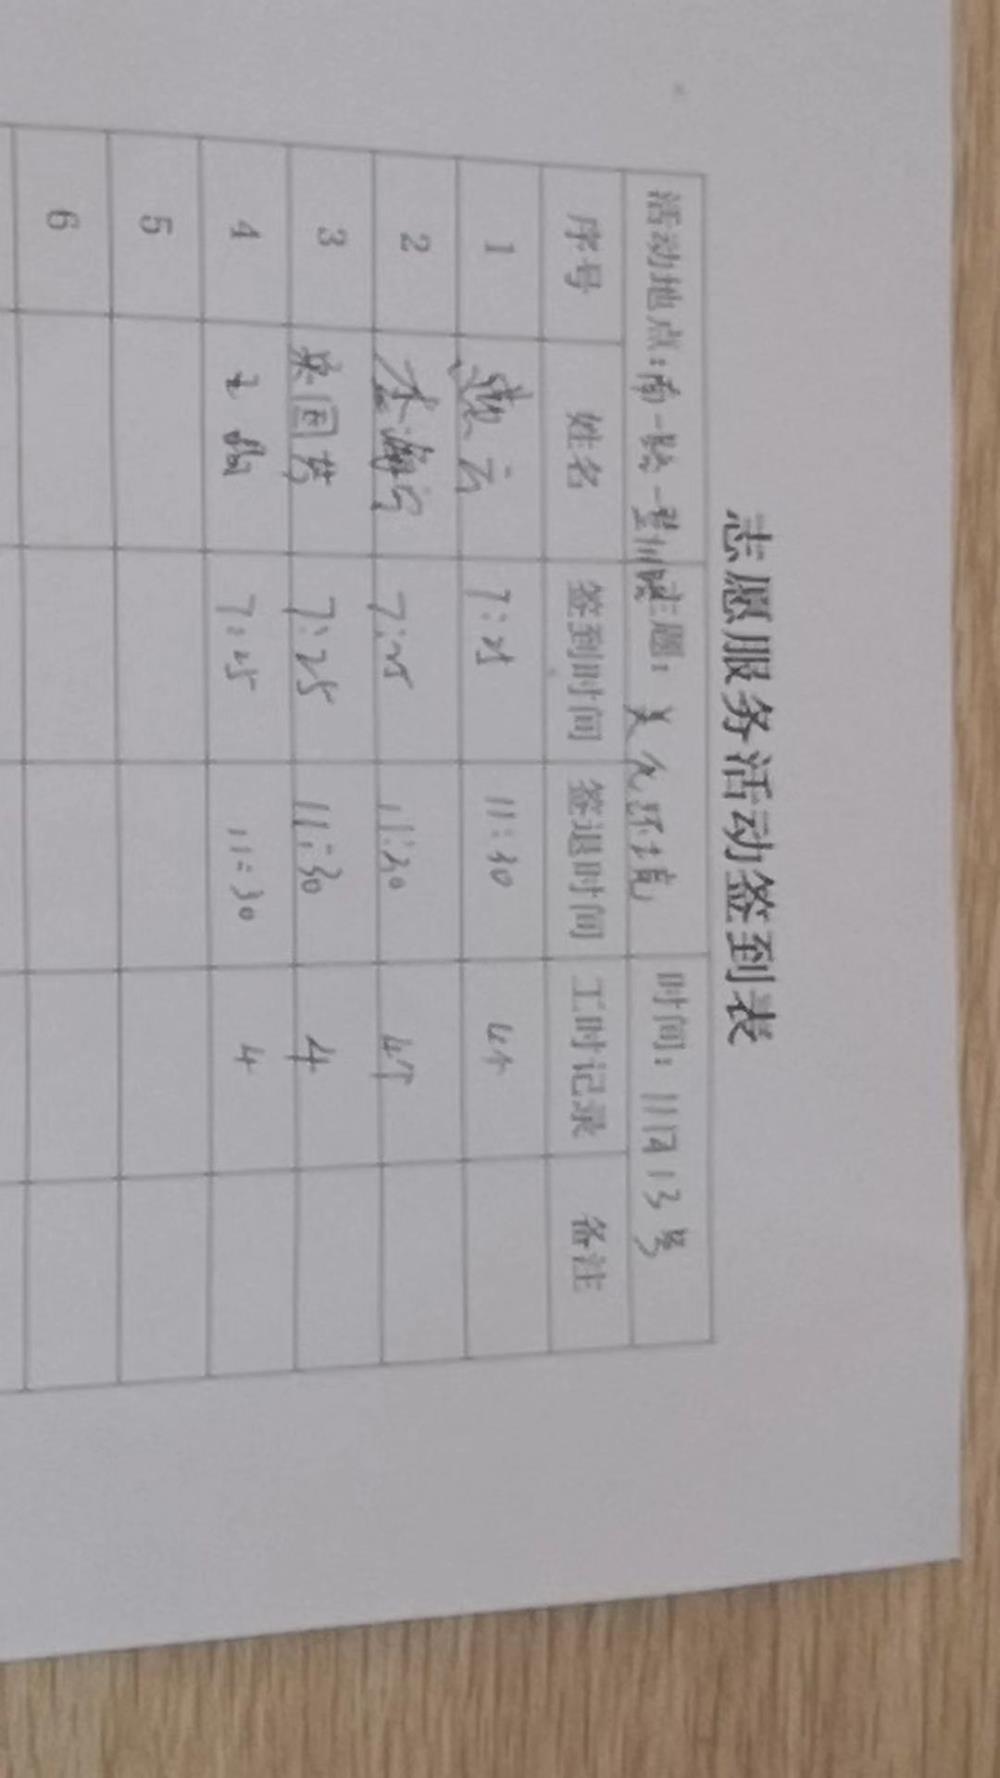 志愿服务活动签到表
活动地点:南一路 主题:美化环境 时间:11月13号
序号 姓名 签到时间 签退时间 工时记录 备注
1 云 7:25 11:30 4个
2 李海 7:25 11:30 4个
3 吴国芳 7:25 11:30 4
4 王 7:25 11:30 4
5
6